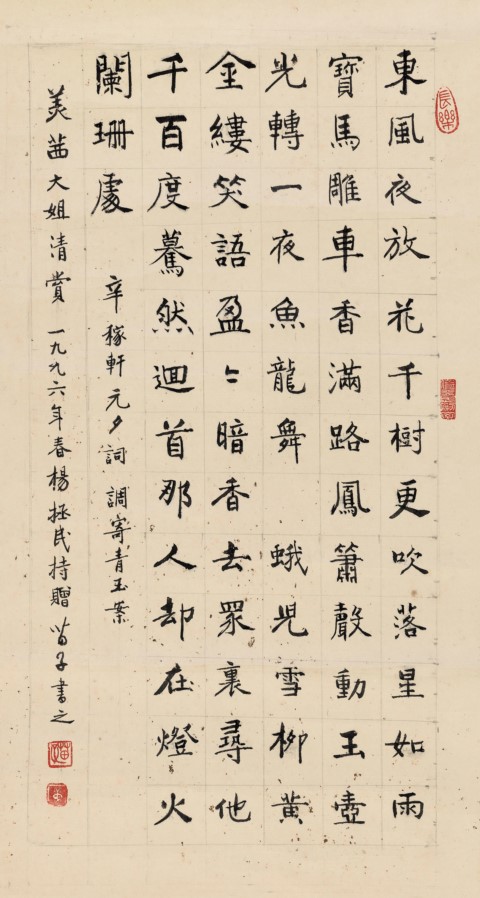 東風夜放花千樹更吹落星如雨
寶馬雕車香滿路鳳簫聲動玉壺
光轉一夜魚龍舞 蛾兒雪柳黃
金縷笑語盈〻暗香去眾裏尋他
千百度驀然迴首那人却在燈火
闌珊處
辛稼軒元夕詞 調寄青玉案
美茜大姐清賞 一九九六年春楊拯民持贈 苗子書之
長樂